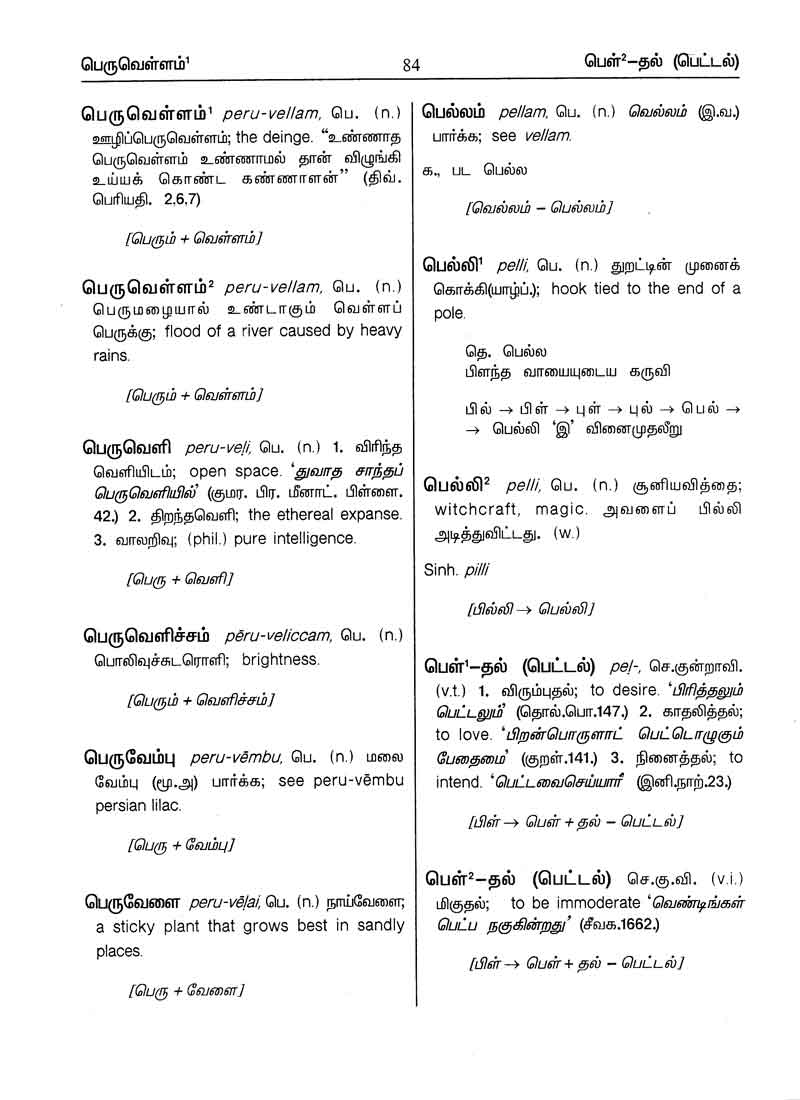 பெருவெள்ளம்¹
84
பெள்²–தல் (பெட்டல்)
பெருவெள்ளம்¹ peru-vellam, பெ. (n.)
ஊழிப்பெருவெள்ளம்; the deinge. “உண்ணாத
பெருவெள்ளம் உண்ணாமல் தான் விழுங்கி
உய்யக் கொண்ட கண்ணாளன்” (திவ்.
பெரியதி. 2,6,7)
[பெரும் + வெள்ளம்]
பெருவெள்ளம்² peru-vellam, பெ. (n.)
பெருமழையால் உண்டாகும் வெள்ளப்
பெருக்கு; flood of a river caused by heavy
rains.
[பெரும் + வெள்ளம்]
பெருவெளி peru-veḷi, பெ. (n.) 1. விரிந்த
வெளியிடம்; open space. ‘துவாத சாந்தப்
பெருவெளியில்’ (குமர. பிர. மீனாட். பிள்ளை.
42.) 2. திறந்தவெளி; the ethereal expanse.
3. வாலறிவு; (phil.) pure intelligence.
[பெரு + வெளி]
பெருவெளிச்சம் pēru-veliccam, பெ. (n.)
பொலிவுச்சுடரொளி; brightness.
[பெரும் + வெளிச்சம்]
பெருவேம்பு peru-vēmbu, பெ. (n.) மலை
வேம்பு (மூ.அ) பார்க்க; see peru-vēmbu
persian lilac.
[பெரு + வேம்பு]
பெருவேளை peru-vēḷai, பெ. (n.) நாய்வேளை;
a sticky plant that grows best in sandly
places.
[பெரு + வேளை]
பெல்லம் pellam, பெ. (n.) வெல்லம் (இ.வ.)
பார்க்க; see vellam.
க., பட பெல்ல
[வெல்லம் – பெல்லம்]
பெல்லி¹ pelli, பெ. (n.) துறட்டின் முனைக்
கொக்கி(யாழ்ப்.); hook tied to the end of a
pole.
தெ. பெல்ல
பிளந்த வாயையுடைய கருவி
பில் → பிள் → புள் → புல் → பெல் →
→ பெல்லி ‘இ’ வினைமுதலீறு
பெல்லி² pelli, பெ. (n.) சூனியவித்தை;
witchcraft, magic. அவளைப் பில்லி
அடித்துவிட்டது. (w.)
Sinh. pilli
[பில்லி → பெல்லி]
பெள்¹–தல் (பெட்டல்) peḷ-, செ.குன்றாவி.
(v.t.) 1. விரும்புதல்; to desire. ‘பிரித்தலும்
பெட்டலும்’ (தொல்.பொ.147.) 2. காதலித்தல்;
to love. ‘பிறன்பொருளாட் பெட்டொழுகும்
பேதைமை’ (குறள்.141.) 3. நினைத்தல்; to
intend. ‘பெட்டவைசெய்யார்’ (இனி.நாற்.23.)
[பிள் → பெள் + தல் – பெட்டல்]
பெள்²–தல் (பெட்டல்) செ.கு.வி. (v.i.)
மிகுதல்; to be immoderate ‘வெண்டிங்கள்
பெட்ப நகுகின்றது’ (சீவக.1662.)
[பிள் → பெள் + தல் – பெட்டல்]